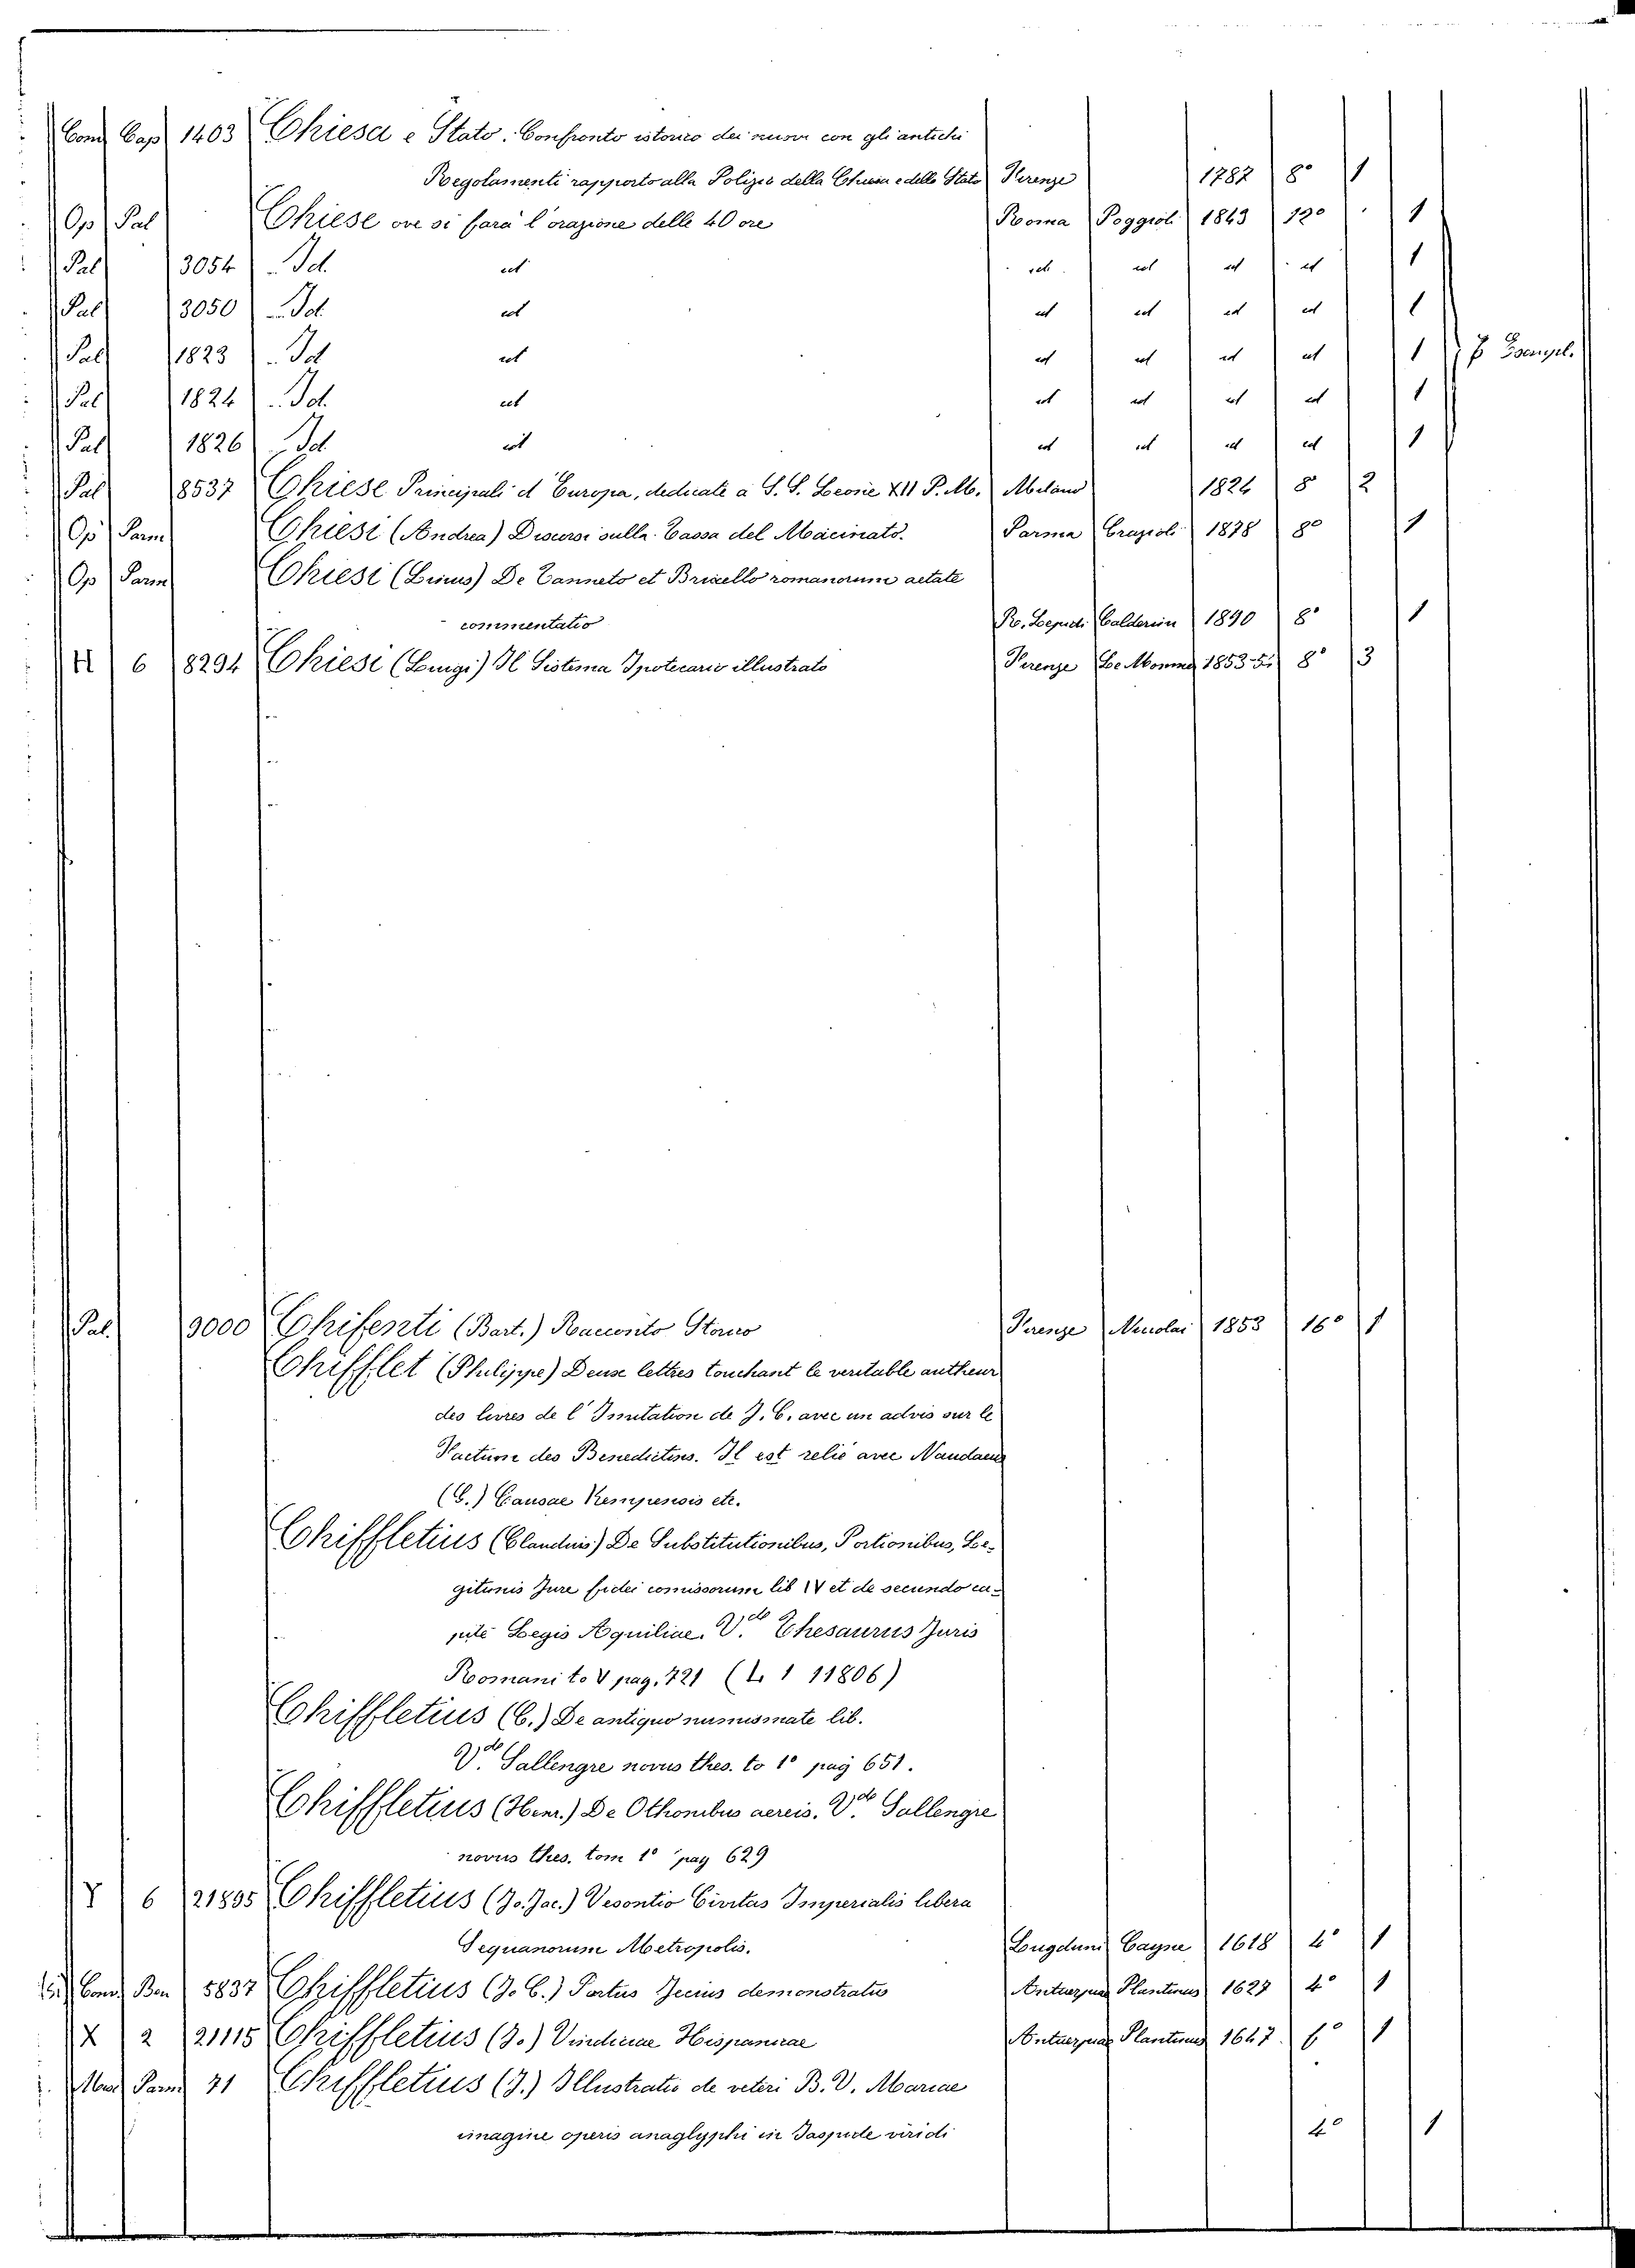 Cons Cap 1403 Chiesa e Stato. Confronto istorico dei nuovi con gli antichi
Regolamenti rapporto alla Polizia della Chiesa e dello Stato Firenze 1787 8° 1
Op Pal Chiese ove si farà l'orazione delle 40 ore Roma Poggioli 1843 12° 1
Pal 3054 Id. id id id id id 1
Pal 3050 Id. id id id id id 1
Pal 1823 Id id id id id id 1 Evangel.
Pal 1824 Id. id id id id id 1
Pal 1826 Id id id id id id 1
Pal 8537 Chiese Principali d'Europa, dedicate a S. S. Leone XII P. M. Milano 1824 8° 2
Op Parm Chiesi (Andrea) Discorsi sulla Tassa del Macinato. Parma Grazioli 1878 8° 1
Op Parm Chiesi (Linus) De Tanneto et Brixello romanorum aetate
commentatio R. Lepidi Calderini 1890 8° 1
H 6 8294 Chiesi (Luigi) Il Sistema Ipotecario illustrato Firenze Le Monnier 8° 3
Pal. 9000 Chifenti (Bart.) Racconto Storico Firenze Niccolai 1853 16° 1
Chifflet (Philippe) Deux lettres touchant le veritable autheur
des livres de l'Imitation de J. C. avec un advis sur le
Factum des Benedictins. Il est relié avec Naudaeus
(G.) Causae Kempensis etc.
Chiffletius (Claudius) De Substitutionibus, Portionibus, Le-
gitimis Jure fidei comissorum lib IV et de secundo ca-
pite Legis Aquiliae. V.de Thesaurus Juris
Romani to V pag. 721 (L 1 11806)
Chiffletius (C.) De antiquo numismate lib.
V.de Sallengre novus thes. to 1° pag 651.
Chiffletius (Henr.) De Othonibus aereis. V.de Sallengre
novus thes. tom 1° pag 629
Y 6 21895 Chiffletius (Jo. Jac.) Vesontio Civitas Imperialis libera
Sequanorum Metropolis. Lugduni Cayne 1618 4° 1
Cons Ben 5837 Chiffletius (J. C.) Portus Iccius demonstratus Antuerpiae Plantinus 1627 4° 1
X 2 21115 Chiffletius (J.) Vindiciae Hispanicae Antuerpiae Plantinus 1647 1
Parm 71 Chiffletius (J.) Illustratio de veteri B. V. Mariae
imagine operis anaglyphi in Jaspide viridi 4° 1